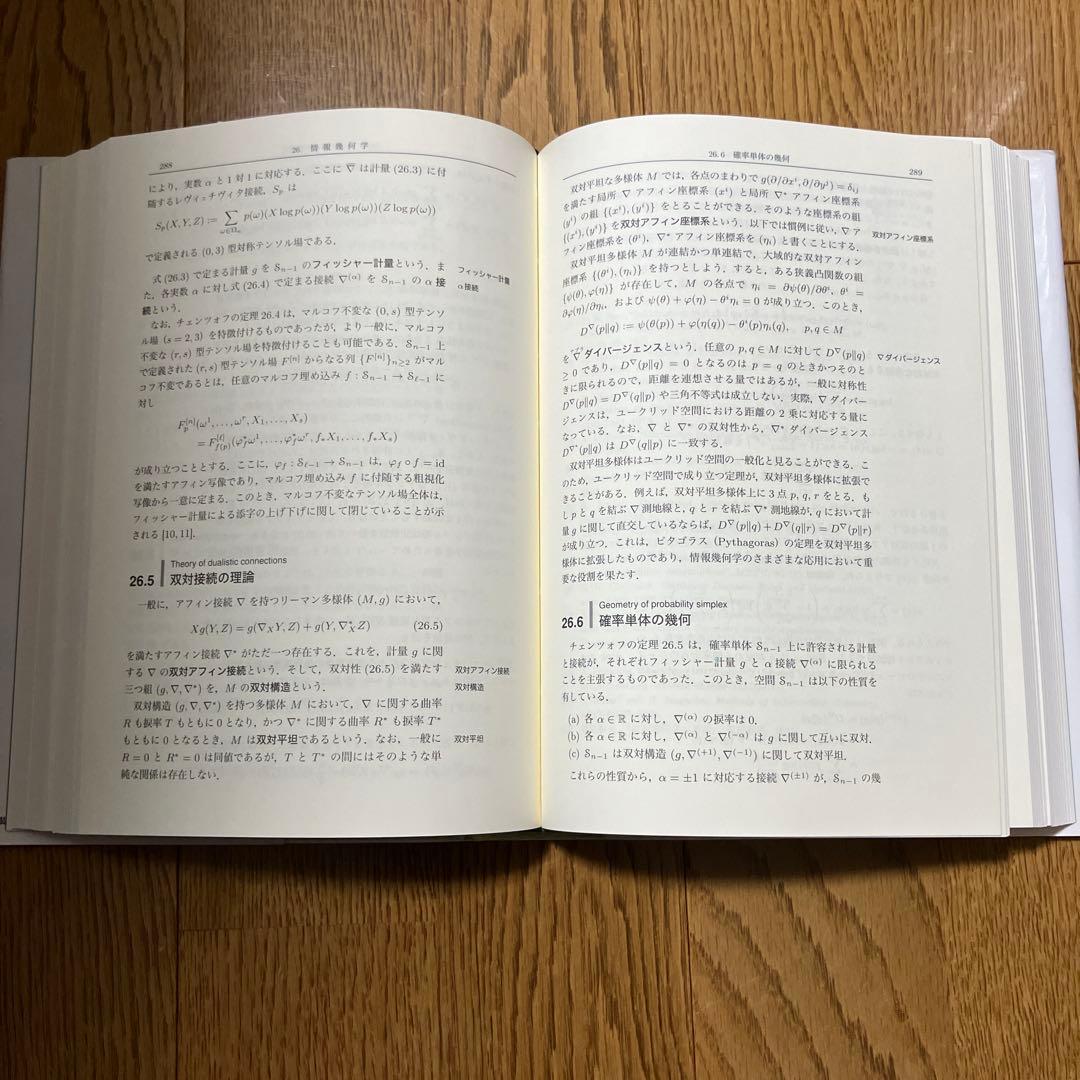 288
26. 情報幾何学
により，実数 α と 1 対 1 に対応する．ここに ∇̄ は計量 (26.3) に付
随するレヴィ=チヴィタ接続，Sₚ は
Sₚ(X, Y, Z) := ∑_{ω∈Ωₙ} p(ω)(X log p(ω))(Y log p(ω))(Z log p(ω))
で定義される (0, 3) 型対称テンソル場である．
式 (26.3) で定まる計量 g を 𝒮ₙ₋₁ のフィッシャー計量という．ま
フィッシャー計量
た，各実数 α に対し式 (26.4) で定まる接続 ∇⁽ᵅ⁾ を 𝒮ₙ₋₁ の α 接
α 接続
続という．
なお，チェンツォフの定理 26.4 は，マルコフ不変な (0, s) 型テンソ
ル場 (s = 2, 3) を特徴付けるものであったが，より一般に，マルコフ
不変な (r, s) 型テンソル場を特徴付けることも可能である．𝒮ₙ₋₁ 上
で定義された (r, s) 型テンソル場 F^{[n]} からなる列 {F^{[n]}}_{n≥2} がマル
コフ不変であるとは，任意のマルコフ埋め込み f : 𝒮ₙ₋₁ → 𝒮_{ℓ−1} に
対し
F_p^{[n]}(ω¹, . . . , ωʳ, X₁, . . . , Xₛ)
= F_{f(p)}^{[ℓ]}(φ_f^*ω¹, . . . , φ_f^*ωʳ, f_*X₁, . . . , f_*Xₛ)
が成り立つこととする．ここに，φ_f : 𝒮_{ℓ−1} → 𝒮ₙ₋₁ は，φ_f ∘ f = id
を満たすアフィン写像であり，マルコフ埋め込み f に付随する粗視化
写像から一意に定まる．このとき，マルコフ不変なテンソル場全体は，
フィッシャー計量による添字の上げ下げに関して閉じていることが示
される [10, 11]．
Theory of dualistic connections
26.5 双対接続の理論
一般に，アフィン接続 ∇ を持つリーマン多様体 (M, g) において，
Xg(Y, Z) = g(∇_X Y, Z) + g(Y, ∇_X^* Z) (26.5)
を満たすアフィン接続 ∇* がただ一つ存在する．これを，計量 g に関
する ∇ の双対アフィン接続という．そして，双対性 (26.5) を満たす
双対アフィン接続
三つ組 (g, ∇, ∇*) を，M の双対構造という．
双対構造
双対構造 (g, ∇, ∇*) を持つ多様体 M において，∇ に関する曲率
R も捩率 T もともに 0 となり，かつ ∇* に関する曲率 R* も捩率 T*
もともに 0 となるとき，M は双対平坦であるという．なお，一般に
双対平坦
R = 0 と R* = 0 は同値であるが，T と T* の間にはそのような単
純な関係は存在しない．
26.6 確率単体の幾何
289
双対平坦な多様体 M では，各点のまわりで g(∂/∂xⁱ, ∂/∂yʲ) = δᵢⱼ
を満たす局所 ∇ アフィン座標系 (xⁱ) と局所 ∇* アフィン座標系
(yⁱ) の組 {(xⁱ), (yⁱ)} をとることができる．そのような座標系の組
{(xⁱ), (yⁱ)} を双対アフィン座標系という．以下では慣例に従い，∇ ア
双対アフィン座標系
フィン座標系を (θⁱ)，∇* アフィン座標系を (ηᵢ) と書くことにする．
双対平坦多様体 M が連結かつ単連結で，大域的な双対アフィン
座標系 {(θⁱ), (ηᵢ)} を持つとしよう．すると，ある狭義凸関数の組
{ψ(θ), φ(η)} が存在して，M の各点で ηᵢ = ∂ψ(θ)/∂θⁱ，θⁱ =
∂φ(η)/∂ηᵢ，および ψ(θ) + φ(η) − θⁱηᵢ = 0 が成り立つ．このとき，
D^∇(p∥q) := ψ(θ(p)) + φ(η(q)) − θⁱ(p)ηᵢ(q), p, q ∈ M
を ∇ ダイバージェンスという．任意の p, q ∈ M に対して D^∇(p∥q)
∇ ダイバージェンス
≥ 0 であり，D^∇(p∥q) = 0 となるのは p = q のときかつそのと
きに限られるので，距離を連想させる量ではあるが，一般に対称性
D^∇(p∥q) = D^∇(q∥p) や三角不等式は成立しない．実際，∇ ダイバー
ジェンスは，ユークリッド空間における距離の 2 乗に対応する量に
なっている．なお，∇ と ∇* の双対性から，∇* ダイバージェンス
D^{∇*}(p∥q) は D^∇(q∥p) に一致する．
双対平坦多様体はユークリッド空間の一般化と見ることができる．こ
のため，ユークリッド空間で成り立つ定理が，双対平坦多様体に拡張で
きることがある．例えば，双対平坦多様体上に 3 点 p, q, r をとる．も
し p と q を結ぶ ∇ 測地線と，q と r を結ぶ ∇* 測地線が，q において計
量 g に関して直交しているならば，D^∇(p∥q) + D^∇(q∥r) = D^∇(p∥r)
が成り立つ．これは，ピタゴラス (Pythagoras) の定理を双対平坦多
様体に拡張したものであり，情報幾何学のさまざまな応用において重
要な役割を果たす．
Geometry of probability simplex
26.6 確率単体の幾何
チェンツォフの定理 26.5 は，確率単体 𝒮ₙ₋₁ 上に許容される計量
と接続が，それぞれフィッシャー計量 g と α 接続 ∇⁽ᵅ⁾ に限られる
ことを主張するものであった．このとき，空間 𝒮ₙ₋₁ は以下の性質を
有している．
(a) 各 α ∈ ℝ に対し，∇⁽ᵅ⁾ の捩率は 0．
(b) 各 α ∈ ℝ に対し，∇⁽ᵅ⁾ と ∇⁽⁻ᵅ⁾ は g に関して互いに双対．
(c) 𝒮ₙ₋₁ は双対構造 (g, ∇⁽⁺¹⁾, ∇⁽⁻¹⁾) に関して双対平坦．
これらの性質から，α = ±1 に対応する接続 ∇⁽±¹⁾ が，𝒮ₙ₋₁ の幾